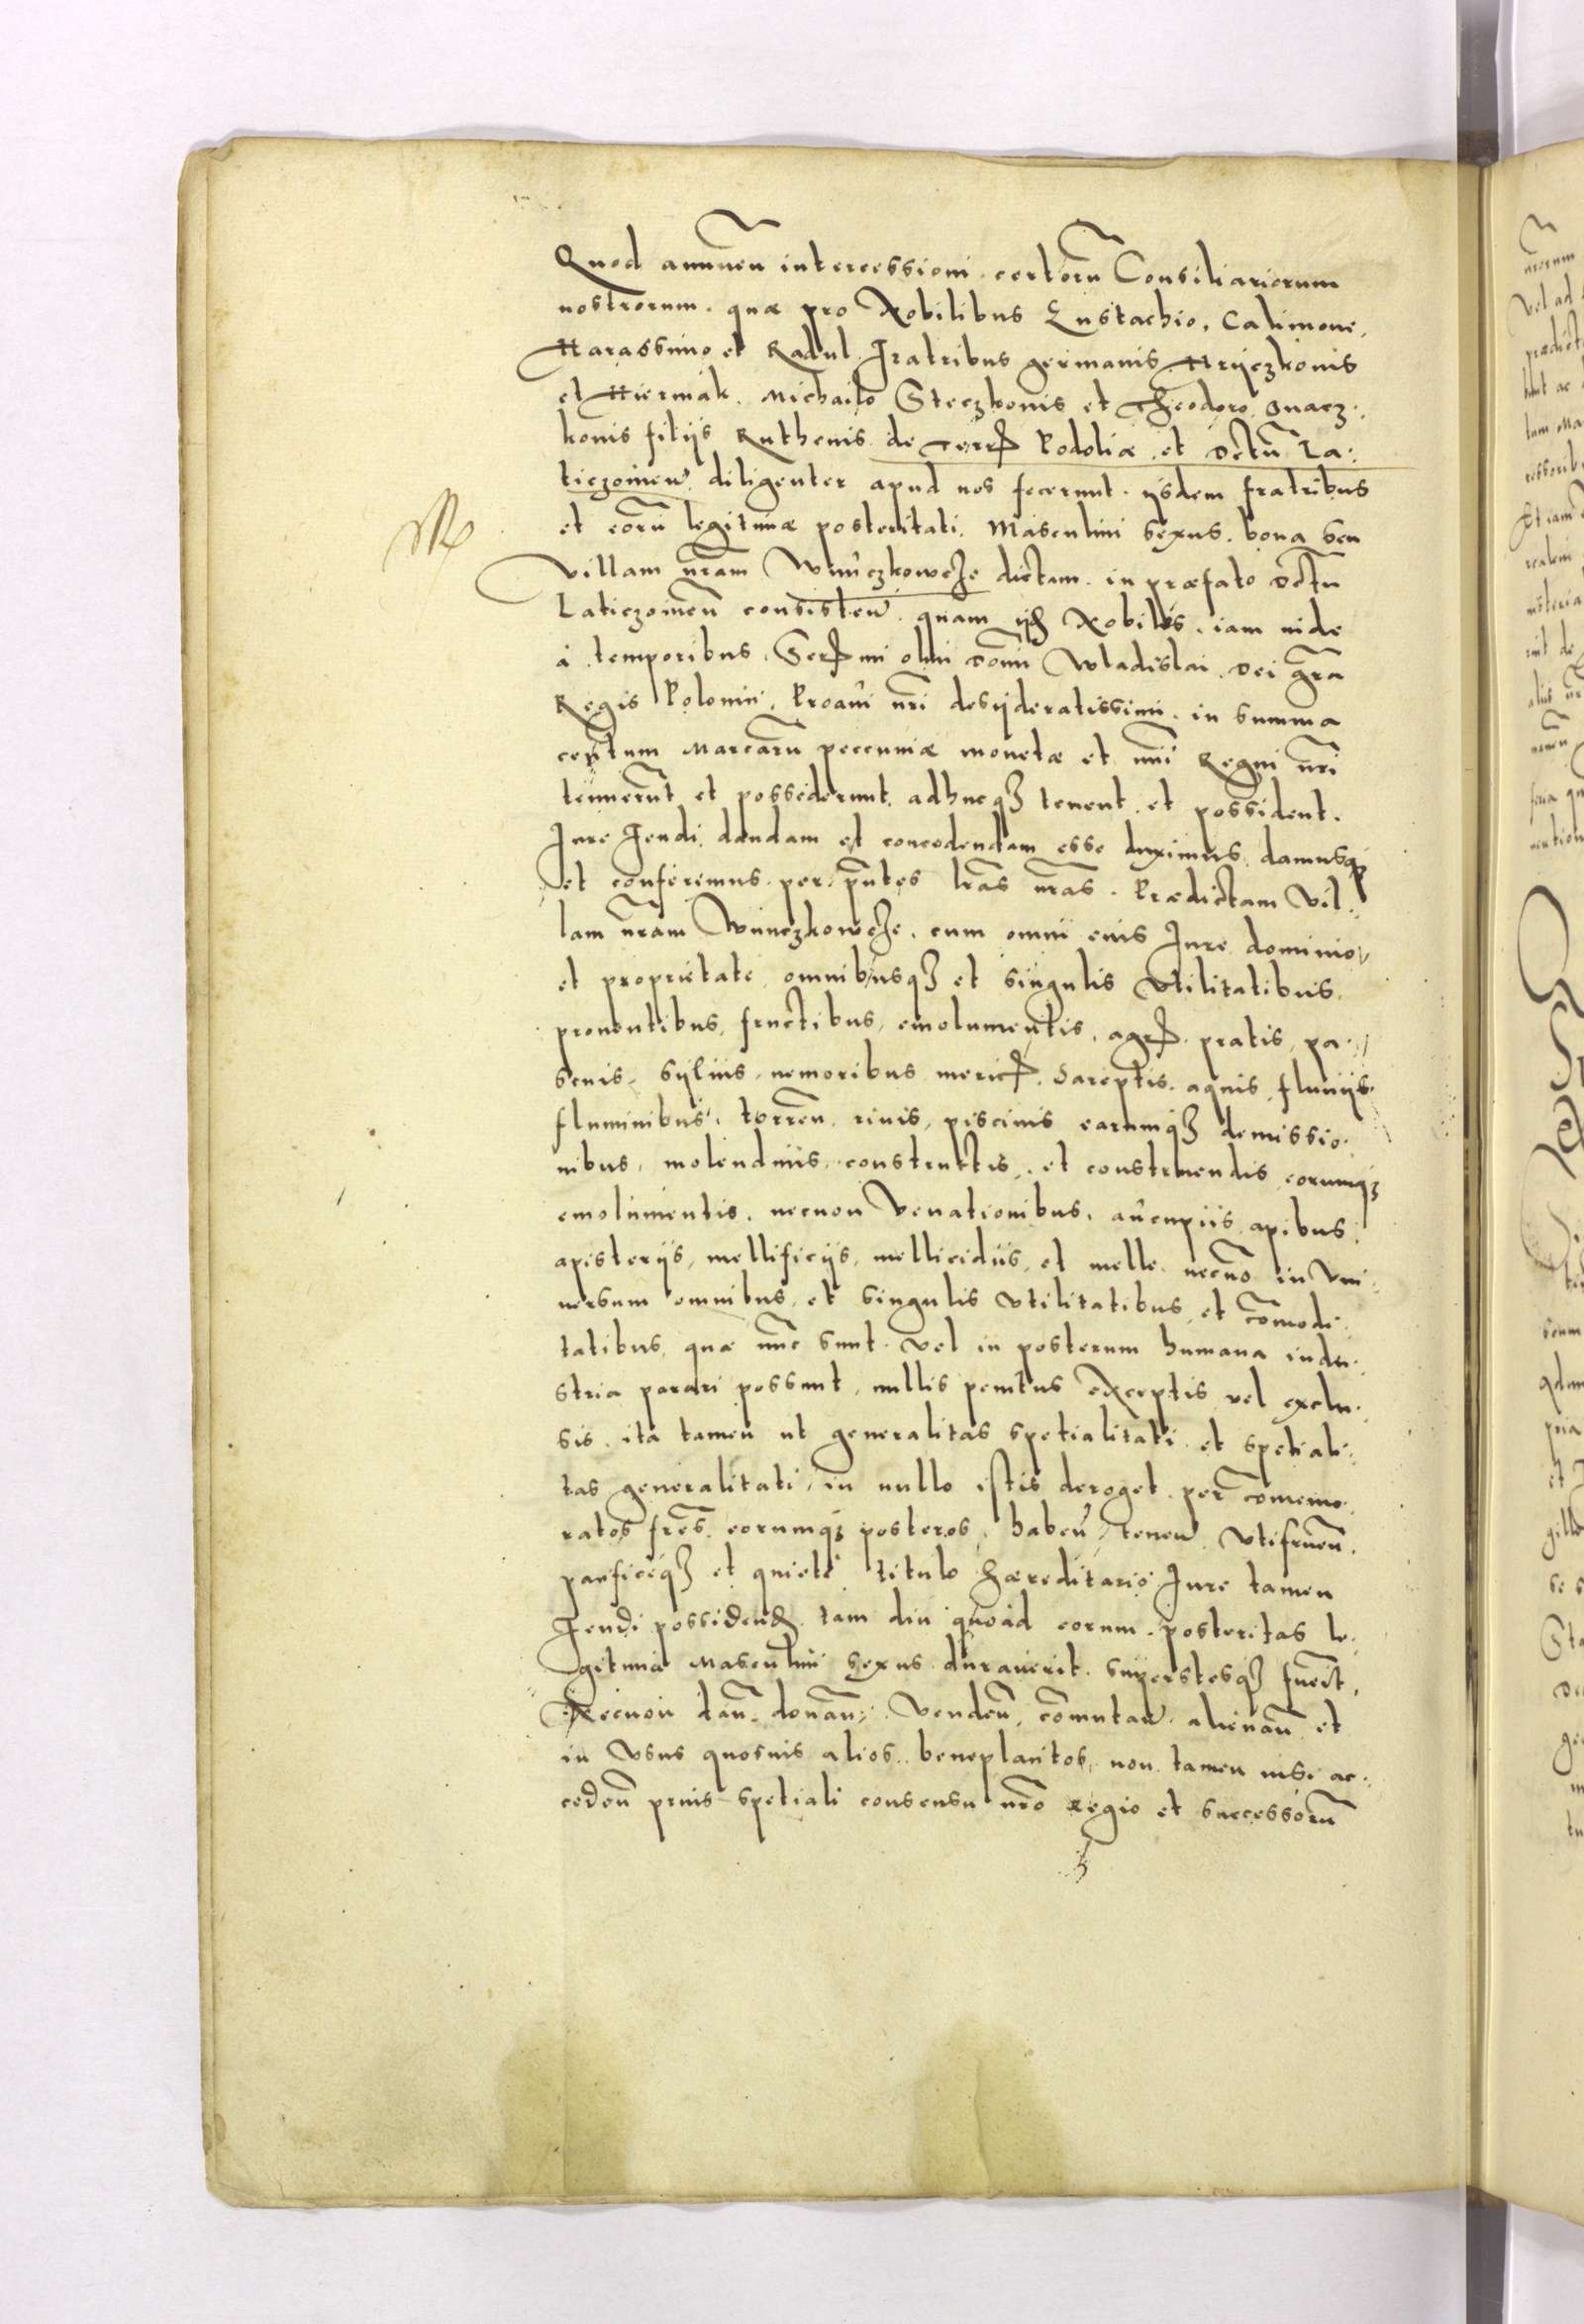 Quod annuen̄ intercessioni certorū Consiliariorum
nostrorum. quæ pro Nobilibus Eustachio, Calimone,
Harassimo et Radul Fratribus germanis Hryczkonis
et Hiermak. Michailo Steczkonis et Theodoro Ivacz-
konis filÿs Ruthenis de Terrꝝ Podoliæ et Dctū La-
ticzoinen̄ diligenter apud nos fecerunt. ÿsdem fratribus
et eorū legitimæ posteritati. Masculini sexus. bona seu
Villam nr̄am Wniuczkowcze dictam. in præfato Dctu
Laticzoinen̄ consisten̄. quam ÿdem Nobiles. iam inde
à temporibus. Serꝝmi olim Domi Wladislai Dei gr̄a
Regis Poloniæ, Proaui nr̄i desÿderatissimi. in summa
centum Marcarū peccuniæ monetæ et nūi Regni nr̄i
tenuerūt et possederunt adhucqꝫ tenent et possident.
Jure Feudi dandam et concedendam esse duximus damusqꝫ
et conferimus. per pn̄tes lr̄as nr̄as. Prædictam Vil-
lam nr̄am Wniuczkowcze. cum omni eius Jure dominio
et proprietate omnibusqꝫ et singulis Vtilitatibus.
prouentibus, fructibus, emolumentis, agrꝝ. pratis, pa-
scuis, syluis, nemoribus mericꝝ. Sareptis. aquis fluuÿs.
fluminibus. torren̄. riuis, piscinis earumqꝫ demissio-
nibus, molendinis, constructis, et construendis eorumqꝫ
emolumentis. necnon Venationibus. aucupiis apibus
apisterÿs, mellificÿs, mellicidiis, et melle. necnō in Vni-
uersum omnibus et singulis Vtilitatibus et com̄odi-
tatibus, quæ nūc sunt. vel in posterum humana indu-
stria parari possunt, nullis penitus exceptis vel exclu-
sis. ita tamen ut generalitas spetialitati et spetiali-
tas generalitati, in nullo istis deroget per com̄emo-
ratos fres̄. eorumqꝫ posteros, haben̄, tenen̄ Vtifruen̄.
pacificeqꝫ et quiete titulo Hæreditario Jure tamen
Feudi possidenꝺ tam diu quoad eorum. posteritas le-
gitima Masculini sexus durauerit. superstesqꝫ fuerit.
Necnon dan̄. donan̄. Venden̄, com̄utan̄. alienan̄ et
in Vsus quosuis alios beneplacitos, non tamen nisi ac-
ceden̄ prius spetiali consensu nr̄o Regio et successorū